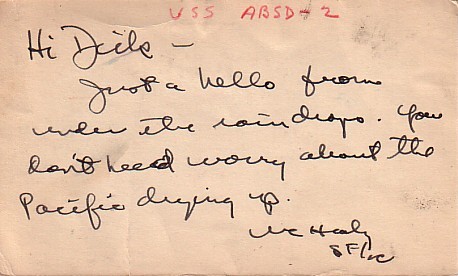 USS ABSD-2
Hi Dick -
Just a hello from
under the rain drops. You
don't need worry about the
Pacific drying up.